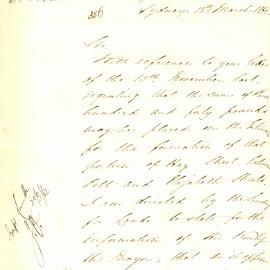 356
Sydney 13th March 18
Sir
With reference to your letter
of the 13th November last,
requesting that the sum of
hundred and forty pounds
may be placed on the
for the formation of that
portion of Hay Street between
Pitt and Elizabeth Streets
I am directed by the
for Lands to state for the
information of the Right
the Mayor, that as it